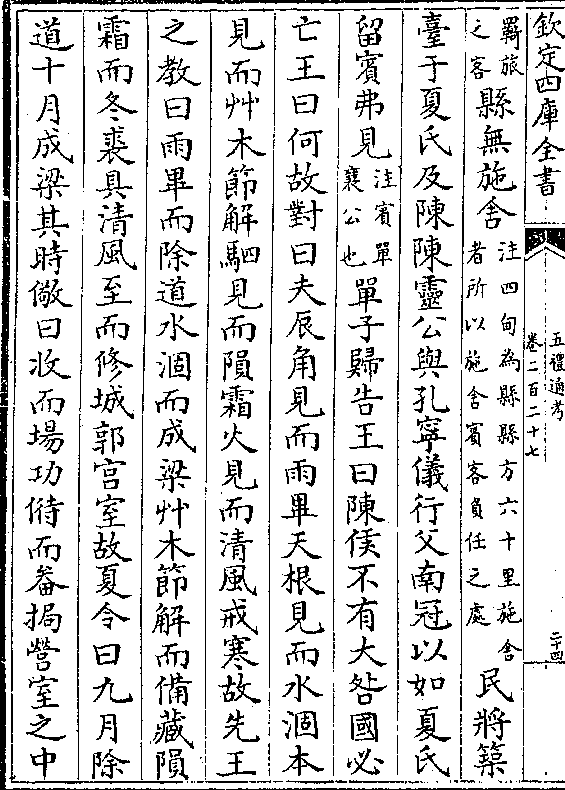 欽定四庫全書
五禮通考
卷二百二十七
二十四
羇旅
之客
縣無施舍
注四甸為縣縣方六十里施舍
者所以施舍賓客負任之處
民將築
臺于夏氏及陳陳靈公與孔寧儀行父南冠以如夏氏
留賓弗見
注賓單
襄公也
單子歸告王曰陳侯不有大咎國必
亡王曰何故對曰夫辰角見而雨畢天根見而水涸本
見而艸木節解駟見而隕霜火見而清風戒寒故先王
之教曰雨畢而除道水涸而成梁艸木節解而備藏隕
霜而冬裘具清風至而修城郭宫室故夏令曰九月除
道十月成梁其時儆曰收而場功偫而畚挶營室之中